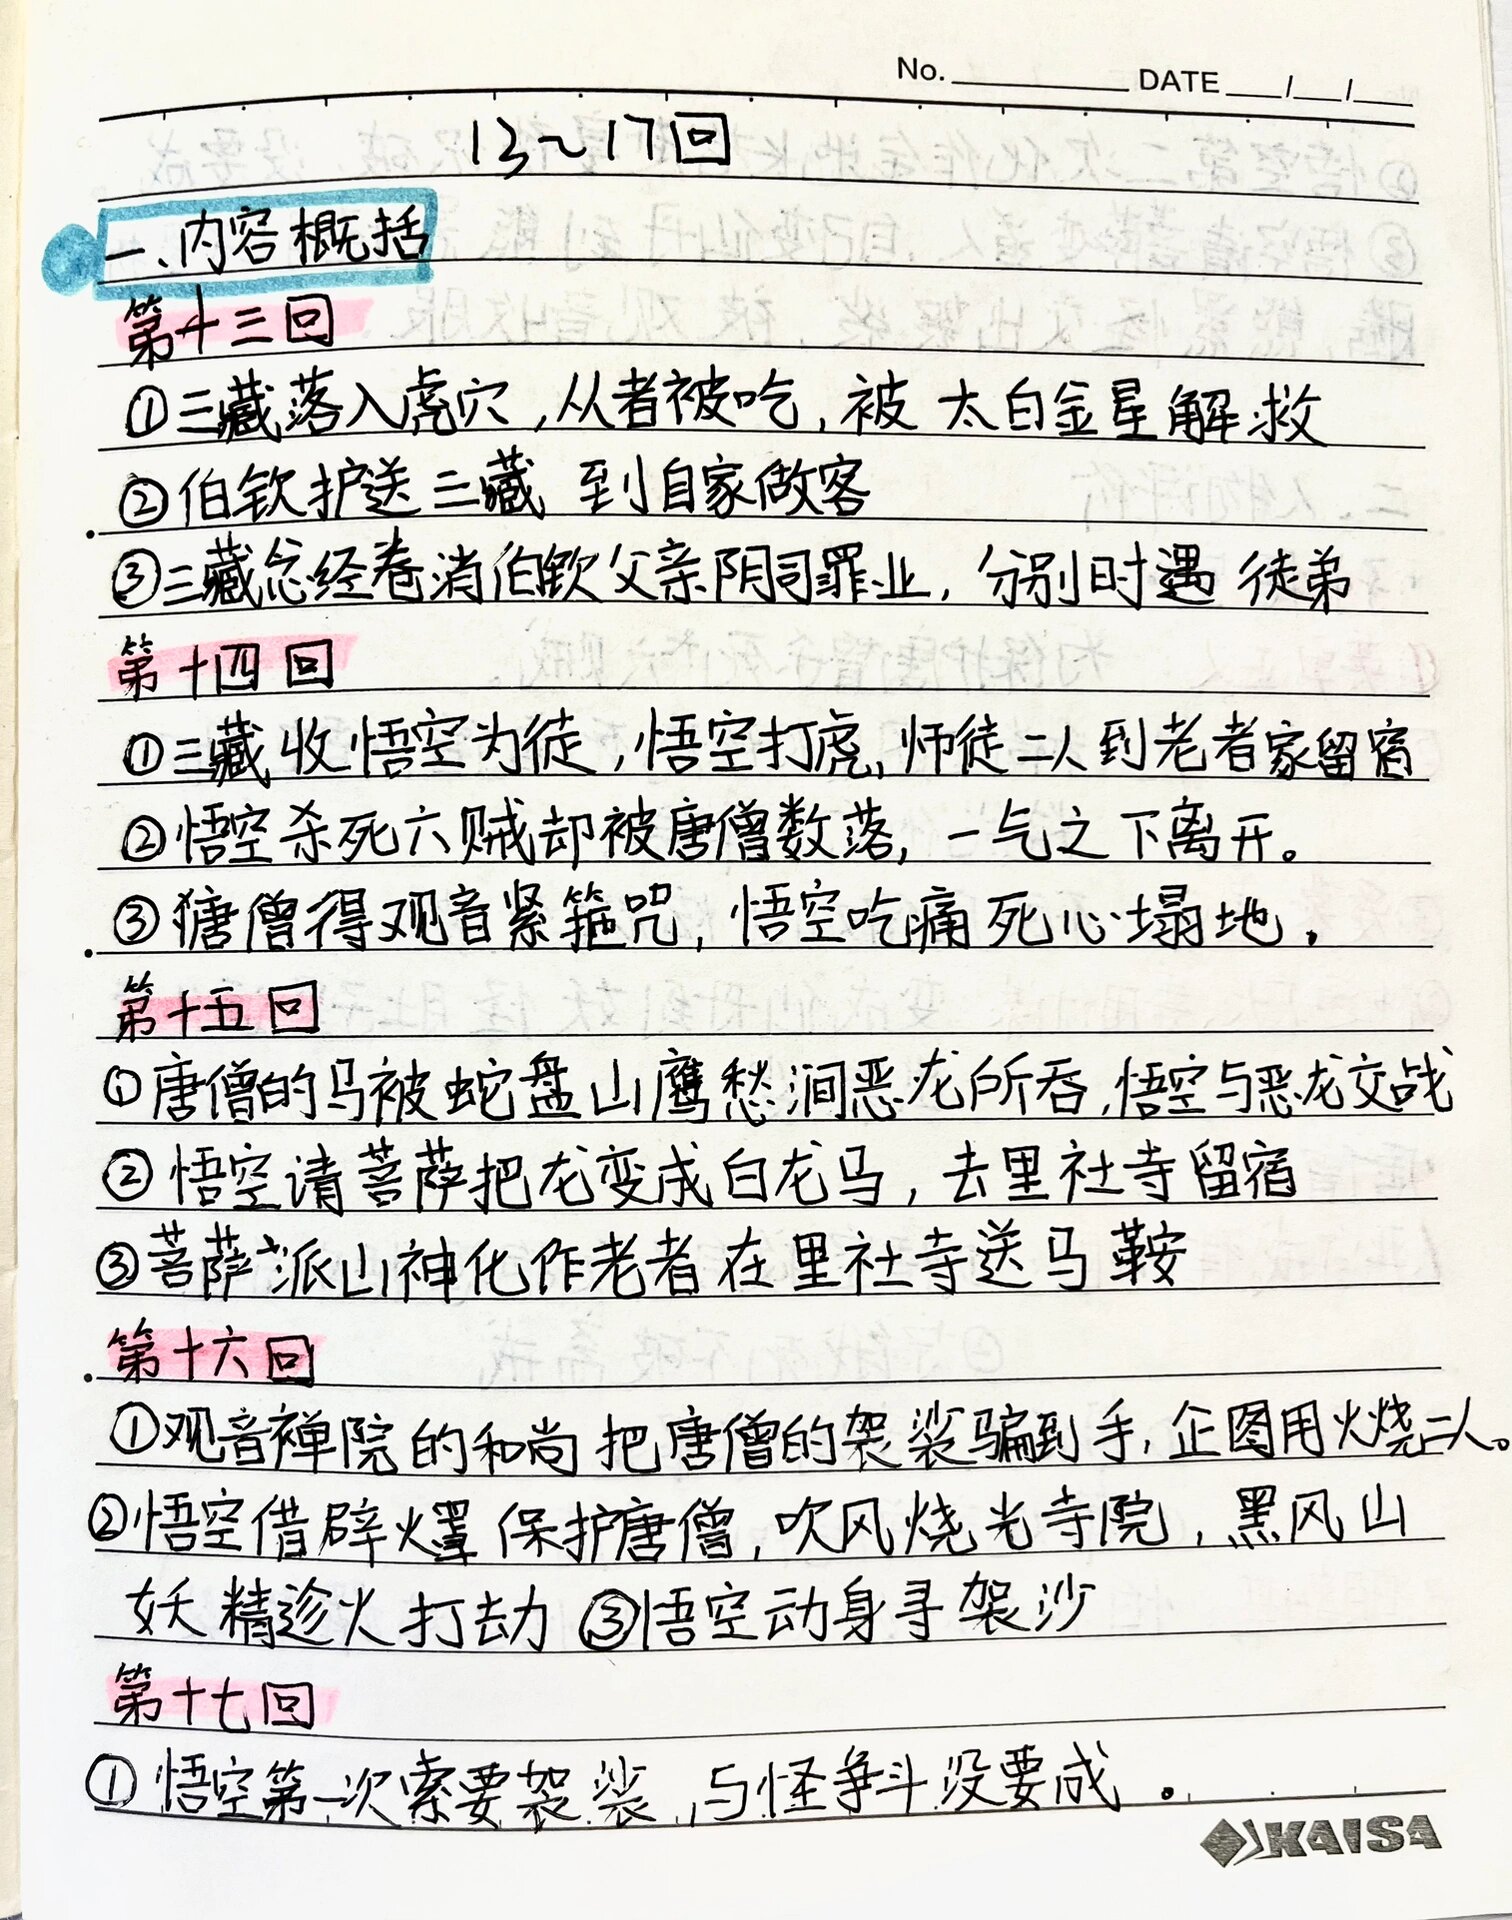 No. DATE / /
13~17回
一、内容概括
第十三回
①三藏落入虎穴,从者被吃,被太白金星解救
②伯钦护送三藏到自家做客
③三藏念经卷消伯钦父亲阴司罪业,分别时遇徒弟
第十四回
①三藏收悟空为徒,悟空打虎,师徒二人到老者家留宿
②悟空杀死六贼却被唐僧数落,一气之下离开。
③唐僧得观音紧箍咒,悟空吃痛死心塌地。
第十五回
①唐僧的马被蛇盘山鹰愁涧恶龙所吞,悟空与恶龙交战
②悟空请菩萨把龙变成白龙马,去里社寺留宿
③菩萨派山神化作老者在里社寺送马鞍
第十六回
①观音禅院的和尚把唐僧的袈裟骗到手,企图用火烧二人。
②悟空借辟火罩保护唐僧,吹风烧光寺院,黑风山
妖精趁火打劫 ③悟空动身寻袈沙
第十七回
①悟空第一次索要袈裟,与怪争斗没要成。
KAISA